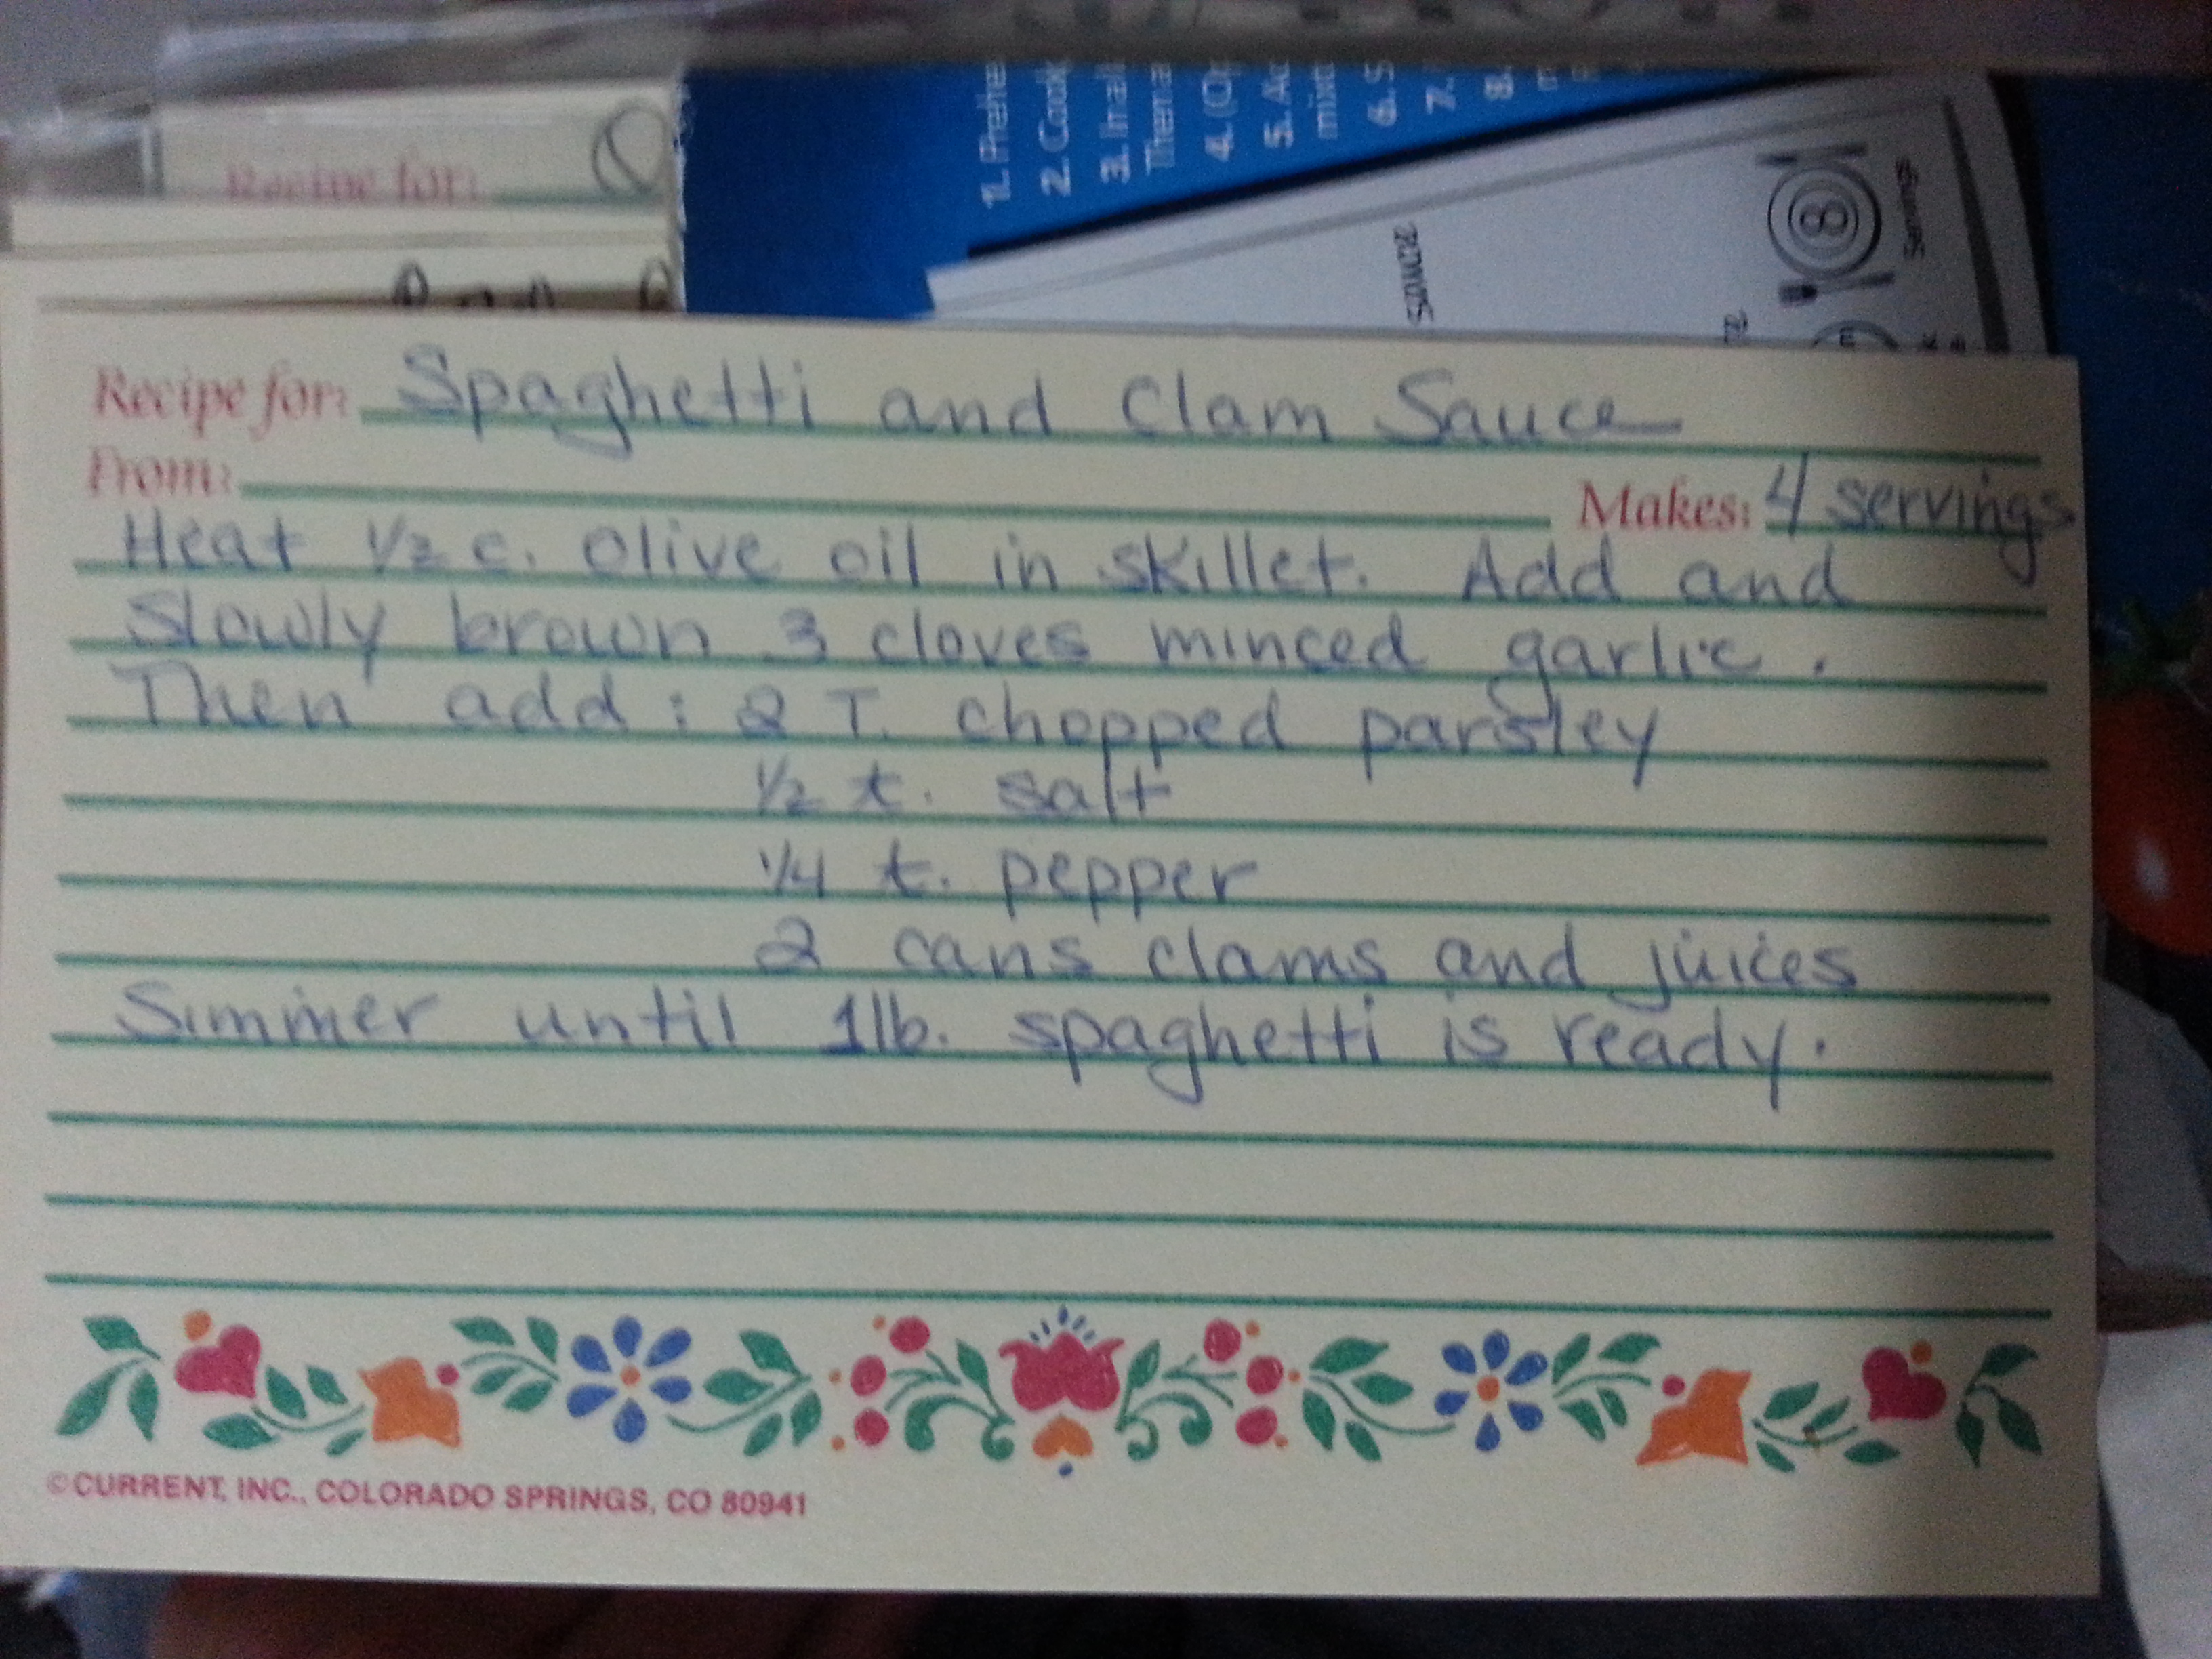 Recipe for:
1. Prehe
2. Cook
3. In a l
Them a
4. (Op
5. Ad
mixt
6. S
7.
8.
8
Recipe for: Spaghetti and Clam Sauce
From: Makes: 4 servings
Heat 1/2 c. Olive oil in skillet. Add and
Slowly brown 3 cloves minced garlic.
Then add: 2 T. chopped parsley
1/2 t. salt
1/4 t. pepper
2 cans clams and juices
Simmer until 1 lb. spaghetti is ready.
©CURRENT, INC., COLORADO SPRINGS, CO 80941